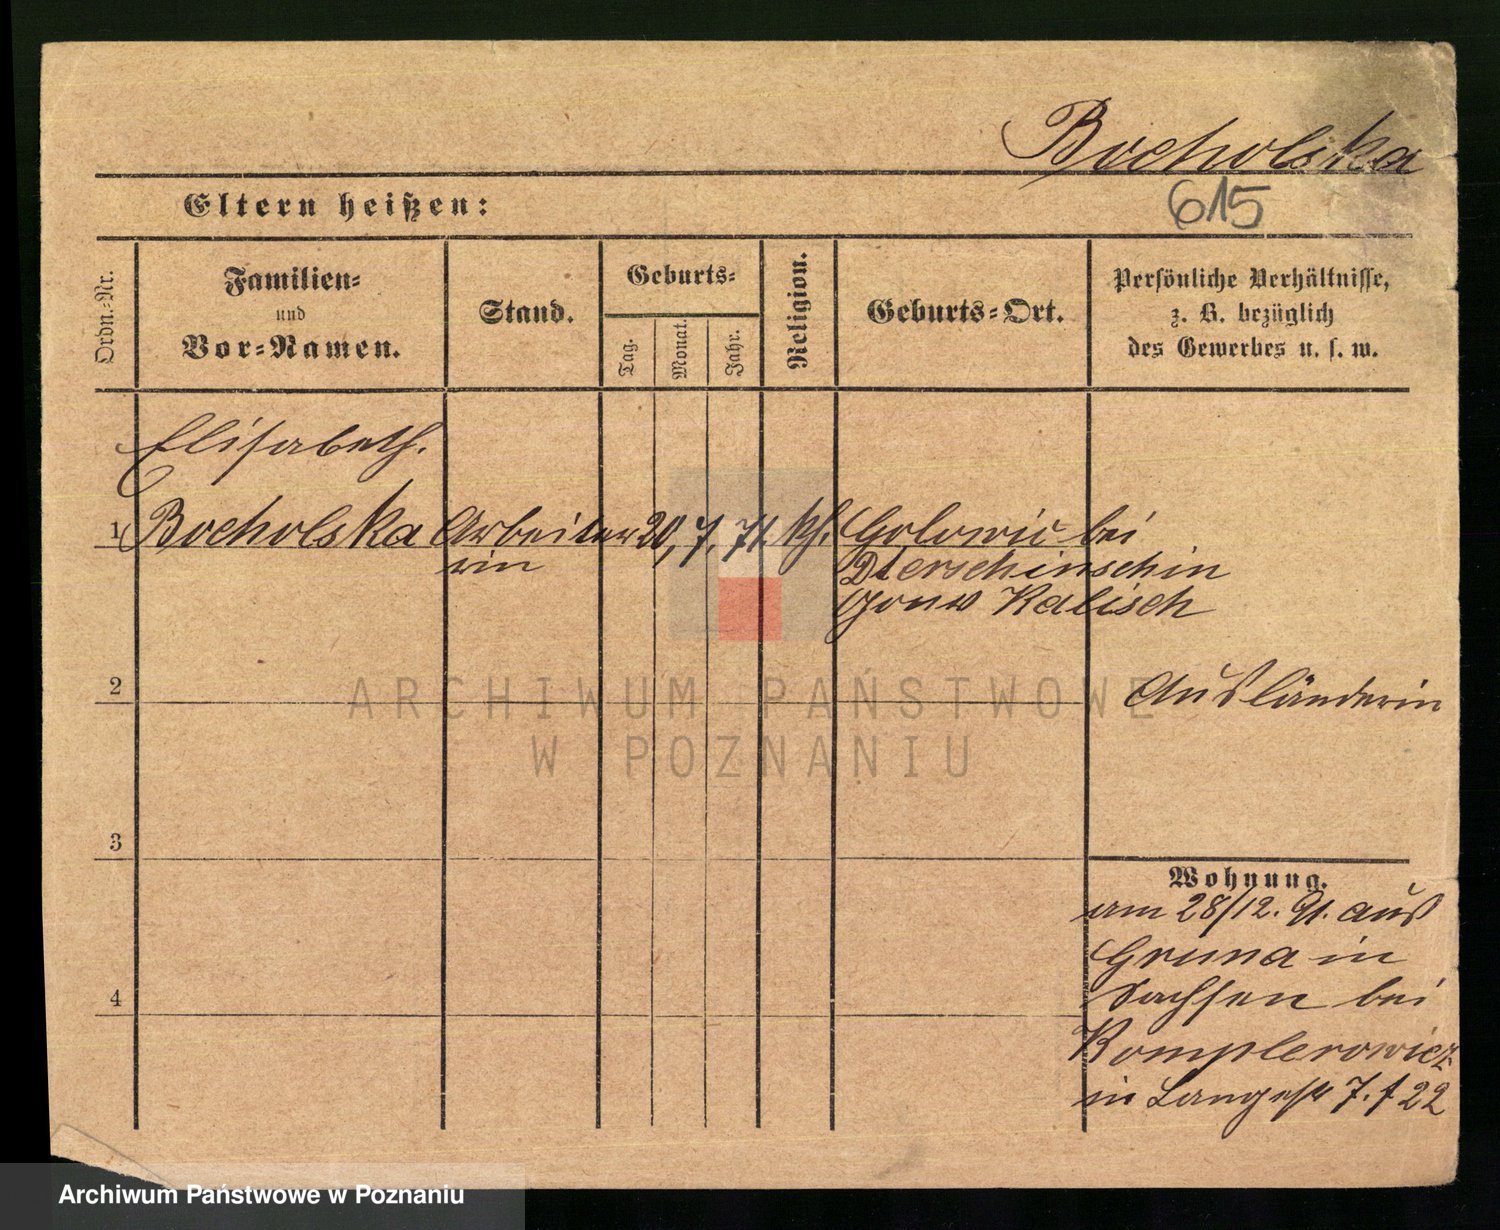 Bocholska
615
Eltern heißen:
Ordn.-Nr.
Familien-
und
Vor-Namen.
Stand.
Geburts-
Tag.
Monat.
Jahr.
Religion.
Geburts-Ort.
Persönliche Verhältnisse,
z. B. bezüglich
des Gewerbes u. s. w.
Elisabeth.
1 Bocholska Arbeiter 20, 7, 71 kth. Golowic bei
rin Dterschinschin
Gouv Kalisch
2
Ausländerin
ARCHIWUM PAŃSTWOWE
W POZNANIU
3
Wohnung.
am 28/12. 91. aus
Gruna in
Sachsen bei
4
Romplerowicz
in Langestr 7. f 22
Archiwum Państwowe w Poznaniu